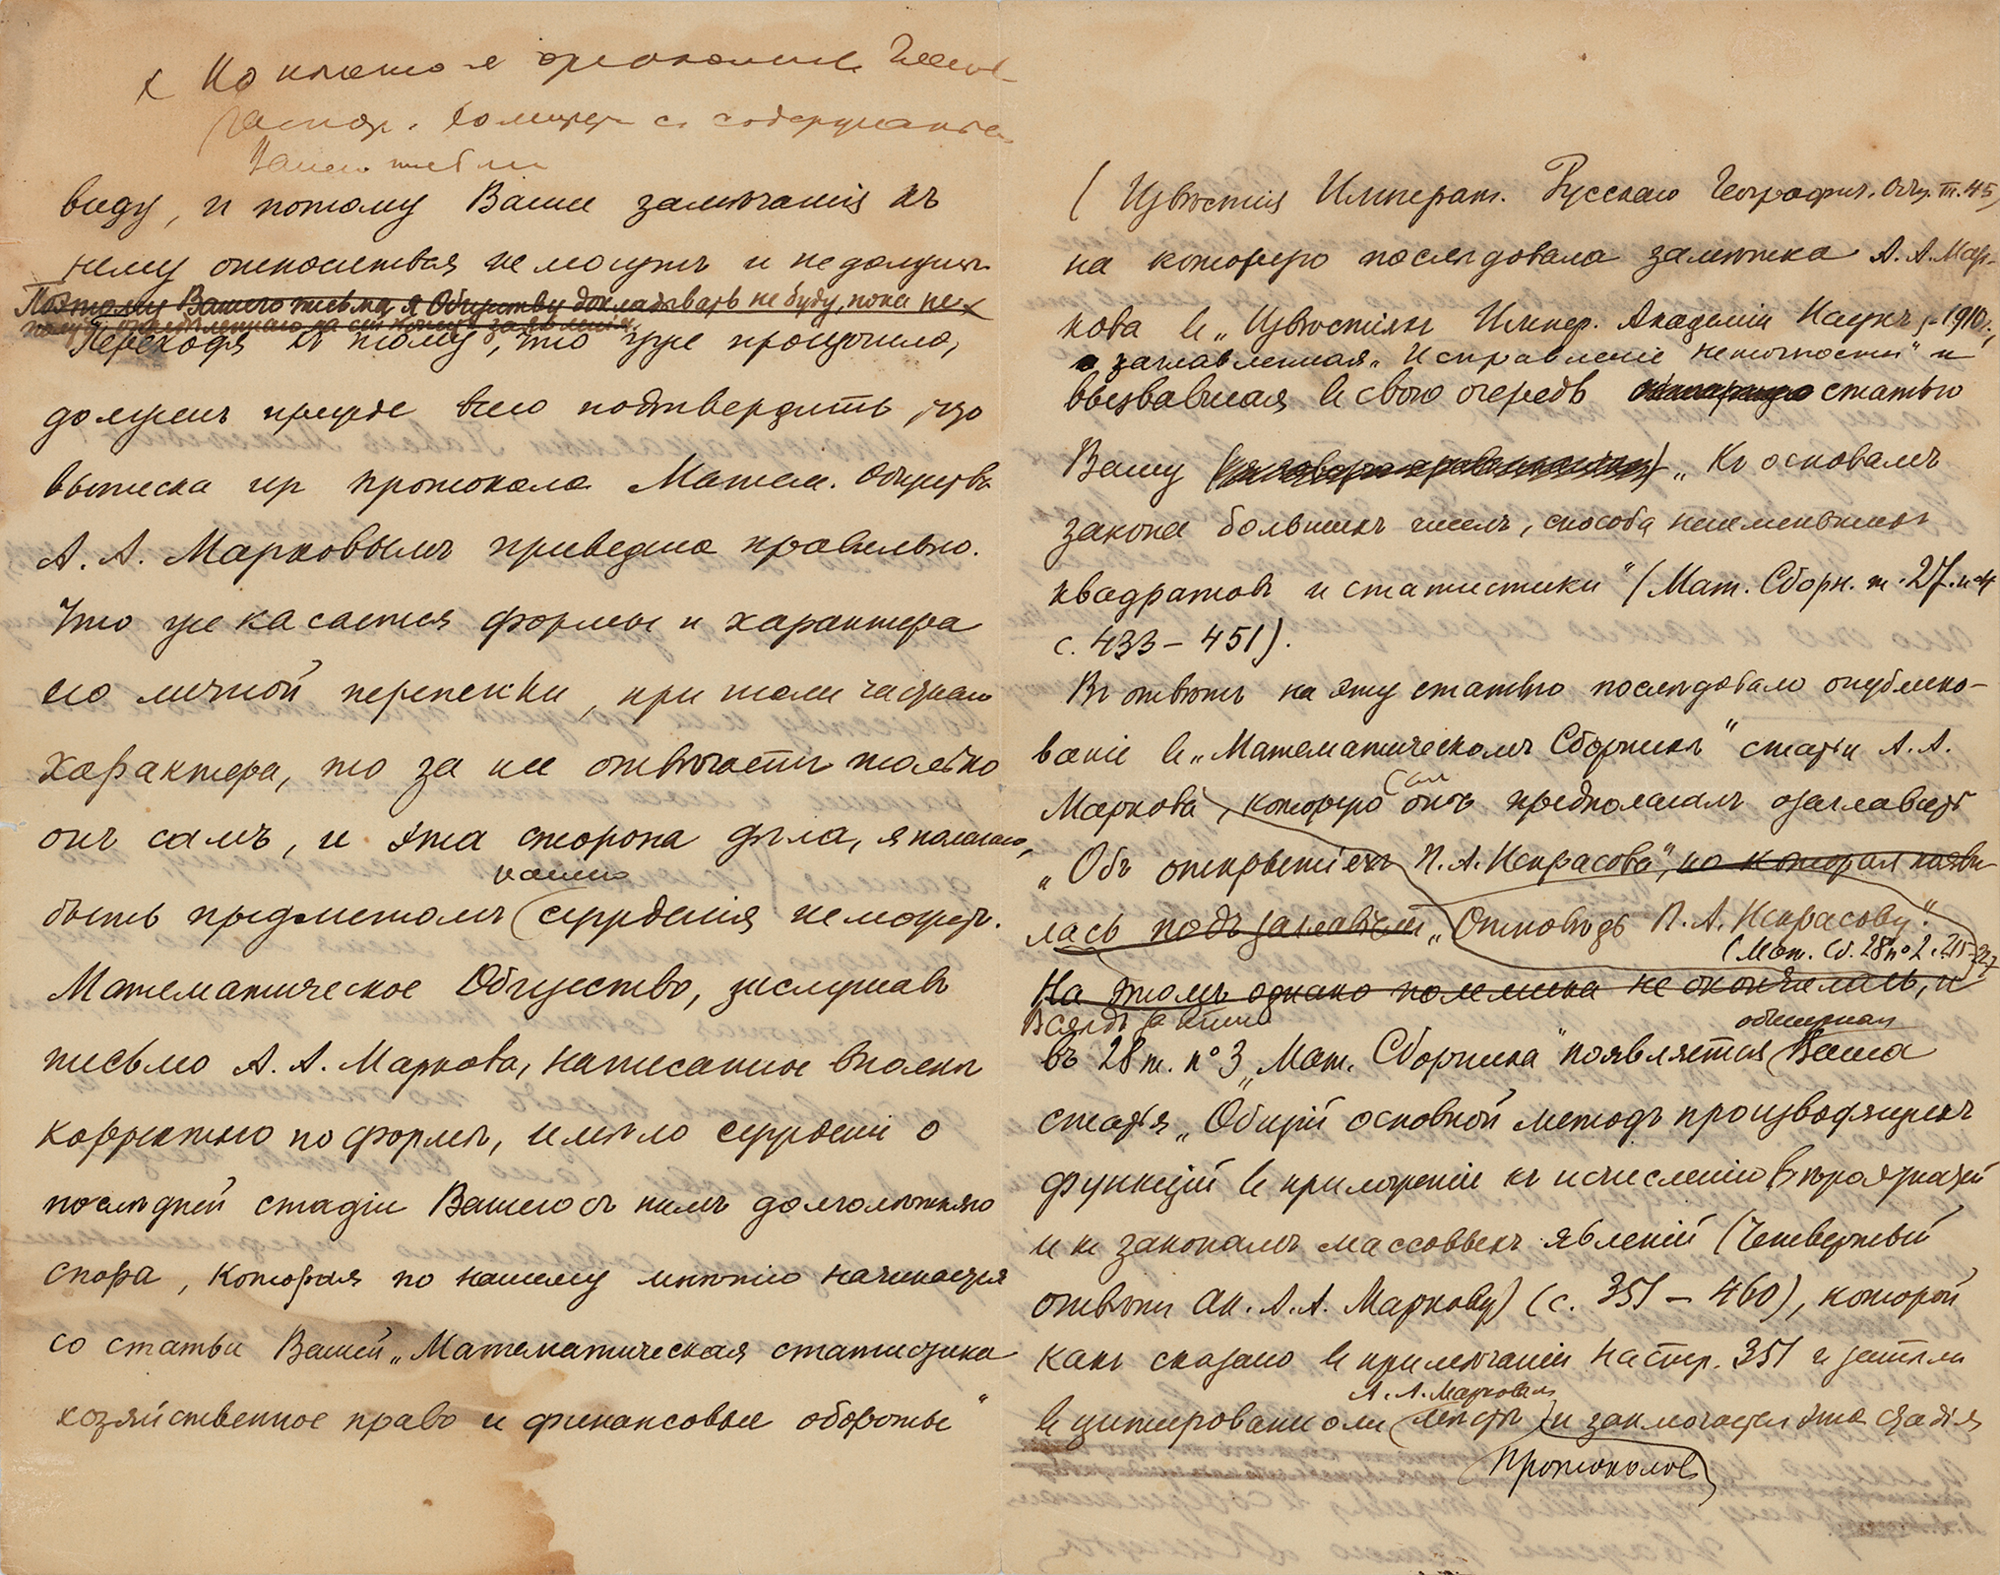 х Но
содержаніе
Вашего
виду, и потому Ваши замѣчанія къ
нему относиться не могутъ и не должны.
Поэтому Вашего письма я Обществу докладывать не буду, пока не
Переходя къ тому, что уже прошло,
долженъ прежде всего подтвердить, что
выписка из протокола Матем. Общества
А. А. Марковымъ приведена правильно.
Что же касается формы и характера
его личной переписки, при томъ частнаго
характера, то за нее отвѣчаетъ только
онъ самъ, и эта сторона дѣла, я полагаю,
нашего
быть предметомъ сужденія не можетъ.
Математическое Общество, заслушавъ
письмо А. А. Маркова, написанное вполнѣ
корректно по формѣ, имѣло сужденіе о
послѣдней стадіи Вашего съ нимъ долголѣтняго
спора, которая по нашему мнѣнію начинается
со статьи Вашей „Математическая статистика
хозяйственное право и финансовые обороты"
( Извѣстія Императ. Русскаго Географич. Общ. т. 45)
на которую послѣдовала замѣтка А. А. Мар-
кова въ „Извѣстіяхъ Импер. Академіи Наукъ, 1910,
озаглавленная „Исправленіе неточностей" и
вызвавшая въ свою очередь статью
Вашу „Къ основамъ
закона большихъ чиселъ, способа наименьшихъ
квадратовъ и статистики" (Мат. Сборн. т. 27.
с. 433 – 451).
Въ отвѣтъ на эту статью послѣдовало опублико-
ваніе въ „Математическомъ Сборникѣ" статьи А. А.
Маркова, которую онъ предполагалъ озаглавить
„Объ открытіяхъ П. А. Некрасова", но которая появи
лась подъ заглавіемъ „Отповѣдь П. А. Некрасову".
(Мат. Сб. 28 № 2.
На этомъ однако полемика не окончилась, и
Вслѣдъ за симъ
обширная
въ 28 т. № 3 „Мат. Сборника" появляется Ваша
статья „Общій основной методъ производящихъ
функцій въ приложеніи къ исчисленію вѣроятностей
и къ законамъ массовыхъ явленій (Четвертый
отвѣтъ ак. А. А. Маркову) (с. 351 – 460), которой
какъ сказано въ примѣчаніи на стр. 351 и
А. А. Марковымъ
въ цитированномъ и заключается эта стадія
протоколовъ